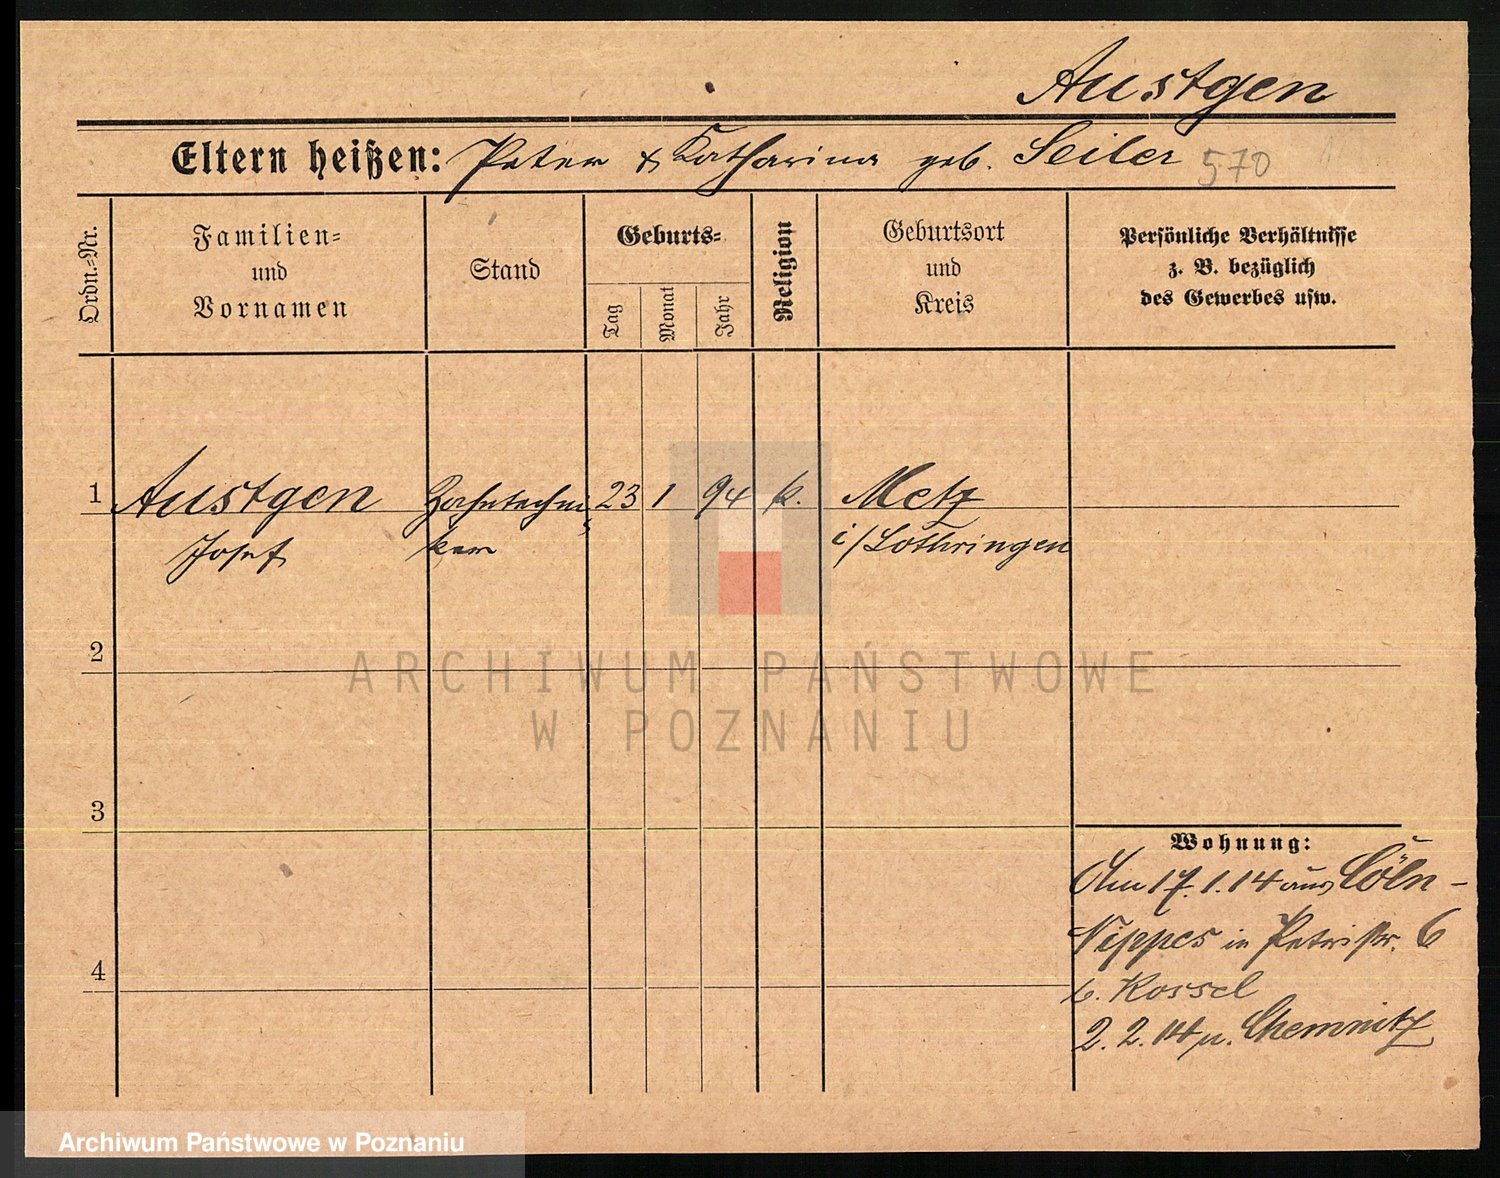 Austgen
Eltern heißen: Peter & Katharina geb. Seiler 570
Ordn.=Nr.
Familien=
und
Vornamen
Stand
Geburts=
Tag
Monat
Jahr
Religion
Geburtsort
und
Kreis
Persönliche Verhältnisse
z. B. bezüglich
des Gewerbes usw.
1 Austgen Zahntechni 23 1 94 k. Metz
Josef ker i/Lothringen
2
ARCHIWUM PAŃSTWOWE
W POZNANIU
3
Wohnung:
Am 17.1.14 aus Cöln-
Nippes in Petristr. 6
4
b. Kossel
2.2.14 n. Chemnitz
Archiwum Państwowe w Poznaniu